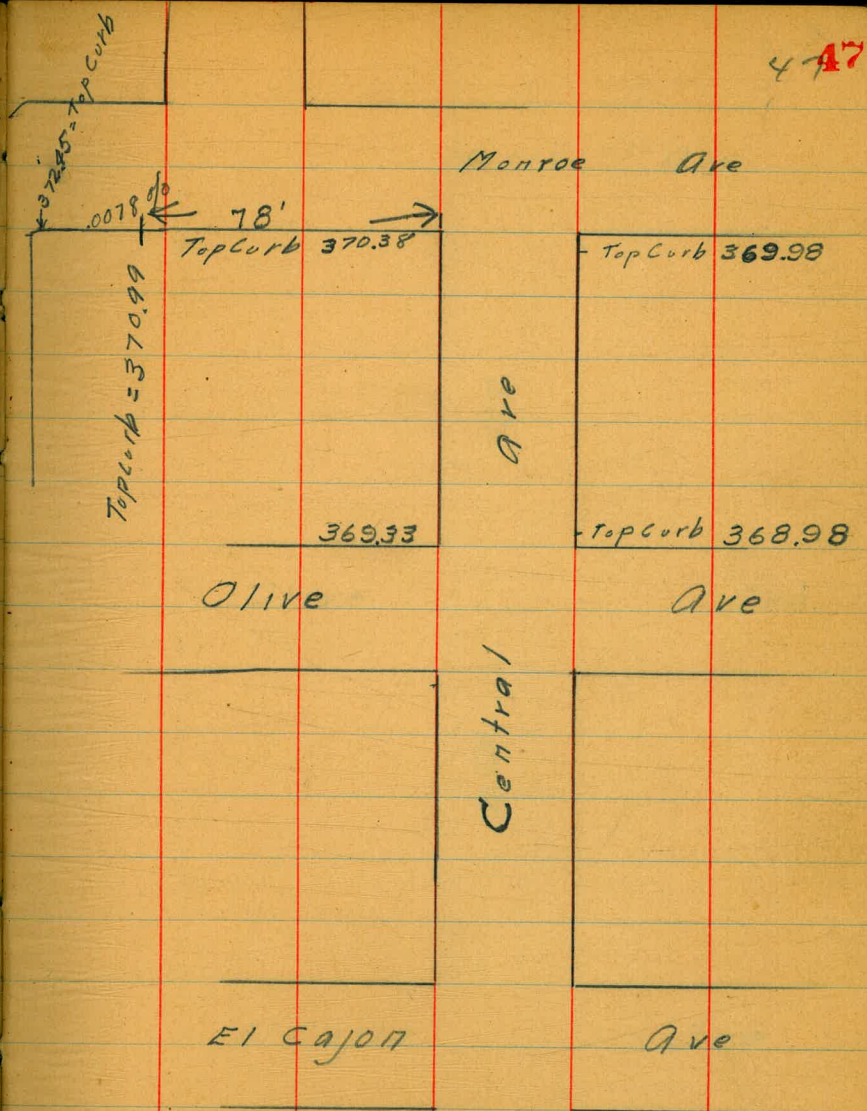 47 47
372.45 = Top Curb
Monroe Ave
.0078 %
78'
Top Curb 370.38
Top Curb 369.98
Top Curb = 370.99
Ave
369.33
Top Curb 368.98
Olive Ave
Central
El Cajon Ave